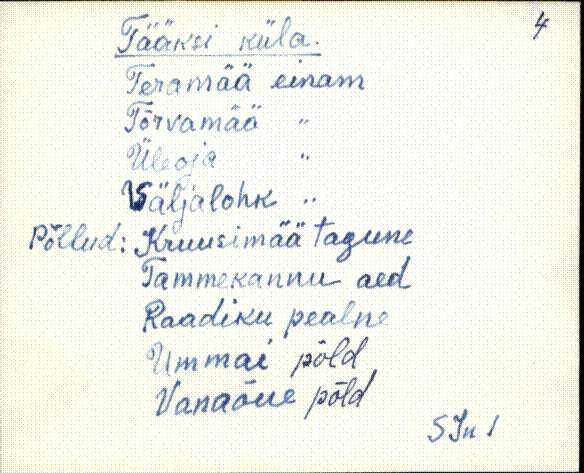 4
Tääksi küla.
Teramää einam
Tõrvamää "
Üleoja "
Väljalohk "
Põllud: Kruusimää tagune
Tammekannu aed
Raadiku pealne
Ummai põld
Vanaõue põld
SJn 1